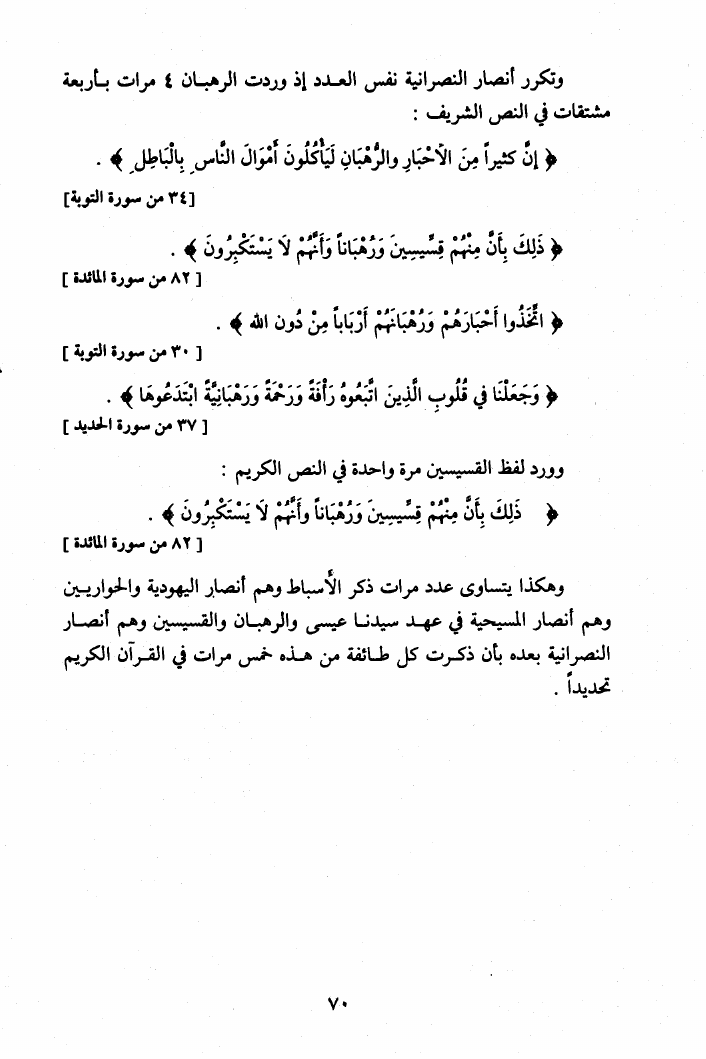 وتكرر أنصار النصرانية نفس العـدد إذ وردت الرهبـان ٤ مرات بـأربعة
مشتقات في النص الشريف :
﴿ إنَّ كثيراً مِنَ الأحْبَارِ والرُّهْبَانِ لَيَأْكُلُونَ أَمْوَالَ النَّاسِ بِالْبَاطِلِ ﴾ .
[٣٤ من سورة التوبة]
﴿ ذَلِكَ بِأَنَّ مِنْهُمْ قِسِّيسِينَ وَرُهْبَاناً وَأَنَّهُمْ لاَ يَسْتَكْبِرُونَ ﴾ .
[ ٨٢ من سورة المائدة ]
﴿ اتَّخَذُوا أَحْبَارَهُمْ وَرُهْبَانَهُمْ أَرْبَاباً مِنْ دُون الله ﴾ .
[ ٣٠ من سورة التوبة ]
﴿ وَجَعَلْنَا في قُلُوبِ الَّذِينَ اتَّبَعُوهُ رَأْفَةً وَرَحْمَةً وَرَهْبَانِيَّةً ابْتَدَعُوهَا ﴾ .
[ ٣٧ من سورة الحديد ]
وورد لفظ القسيسين مرة واحدة في النص الكريم :
﴿ ذَلِكَ بِأَنَّ مِنْهُمْ قِسِّيسِينَ وَرُهْبَاناً وأَنَّهُمْ لاَ يَسْتَكْبِرُونَ ﴾ .
[ ٨٢ من سورة المائدة ]
وهكذا يتساوى عدد مرات ذكر الأسباط وهم أنصار اليهودية والحواريـين
وهم أنصار المسيحية في عهـد سيدنـا عيسى والرهبـان والقسيسين وهم أنصـار
النصرانية بعده بأن ذكـرت كل طـائفة من هـذه خمس مرات في القـرآن الكريم
تحديداً .
٧٠